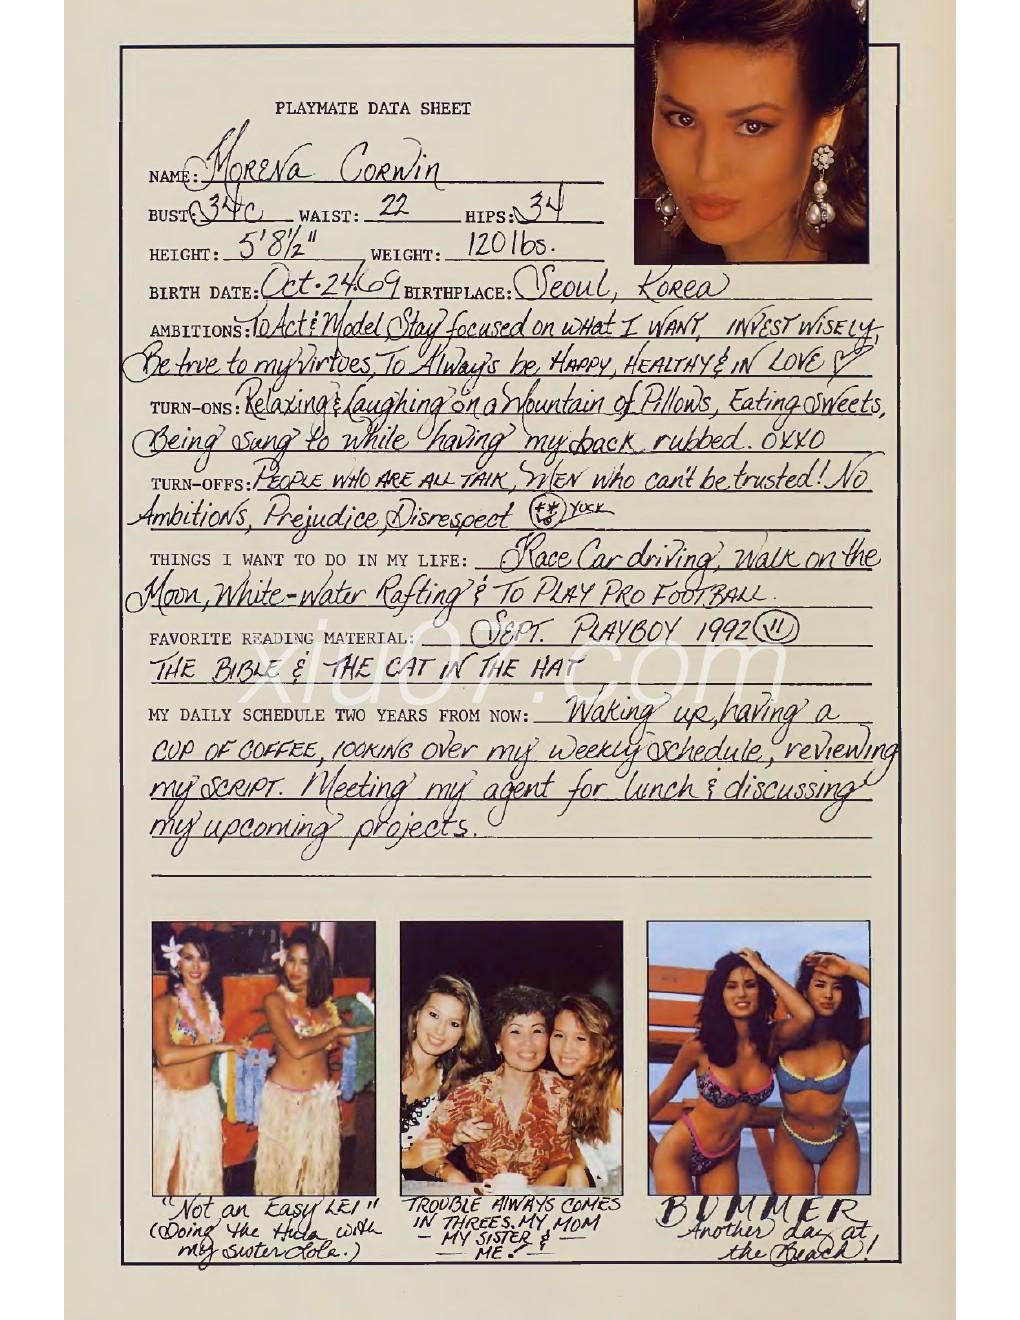 PLAYMATE DATA SHEET
NAME: Morena Corwin
BUST: 34C WAIST: 22 HIPS: 34
HEIGHT: 5'8½" WEIGHT: 120 lbs.
BIRTH DATE: Oct. 24.69 BIRTHPLACE: Seoul, Korea
AMBITIONS: To Act & Model Stay focused on what I WANT, INVEST WISELY,
Be true to my virtues, To Always be HAPPY, HEALTHY & IN LOVE ♡
TURN-ONS: Relaxing & laughing on a Mountain of Pillows, Eating Sweets,
Being sung to while having my back rubbed. OXXO
TURN-OFFS: PEOPLE WHO ARE ALL TALK, MEN who can't be trusted! No
Ambitions, Prejudice, Disrespect YUCK
THINGS I WANT TO DO IN MY LIFE: Race Car driving, Walk on the
Moon, White-Water Rafting & To PLAY PRO FOOTBALL.
FAVORITE READING MATERIAL: SEPT. PLAYBOY 1992
THE BIBLE & THE CAT IN THE HAT
xiu07.com
MY DAILY SCHEDULE TWO YEARS FROM NOW: Waking up, having a
CUP OF COFFEE, looking over my weekly schedule, reviewing
my SCRIPT. Meeting my agent for lunch & discussing
my upcoming projects.
"Not an Easy LEI"
(Doing the Hula with
my sister Lola.)
TROUBLE ALWAYS COMES
IN THREES. MY MOM
- MY SISTER & -
ME!
BUMMER
Another day at
the Beach!